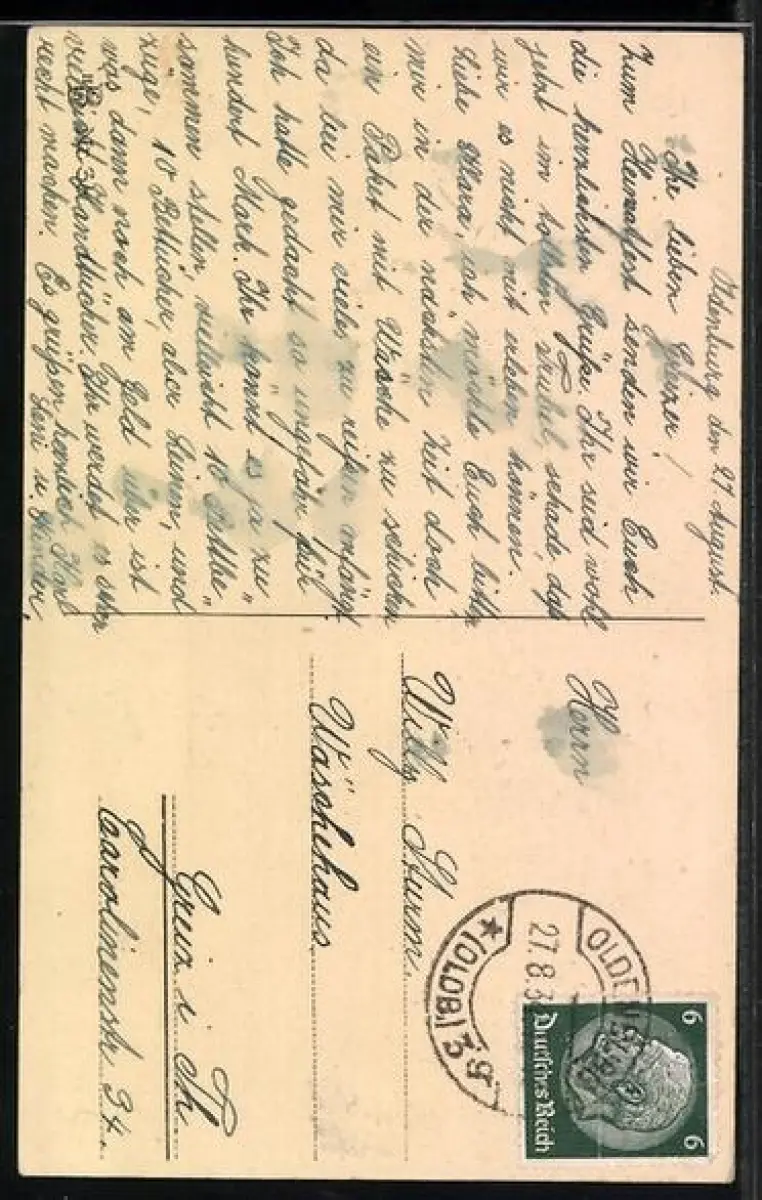 Oldenburg den 27. August.
Ihr lieben Greizer!
Zum Heimatfest senden wir Euch
die herzlichsten Grüße. Ihr seid wohl
jetzt im tollsten Trubel, schade, daß
wir es nicht mit erleben können.
Liebe Klara, ich möchte Euch bitten
mir in der nächsten Zeit doch
ein Paket mit Wäsche zu schicken
da bei mir vieles zu reißen anfängt.
Ich hatte gedacht so ungefähr für
hundert Mark. Ihr könnt es ja zu"
sammen stellen, vielleicht 10 Bettbe"
züge, 10 Bettücher, aber Leinen, und
was dann noch am Geld über ist
vielleicht Handtücher. Ihr werdet es schon
recht machen. Es grüßen herzlich Karl
Leni u. Kinder.
Herrn
Willy Sturm.
Wäschehaus
Greiz i. Th
Carolinenstr. 34.
OLDENBURG
27.8.3
*(OLDB.) 3 g
6 6
Deutsches Reich